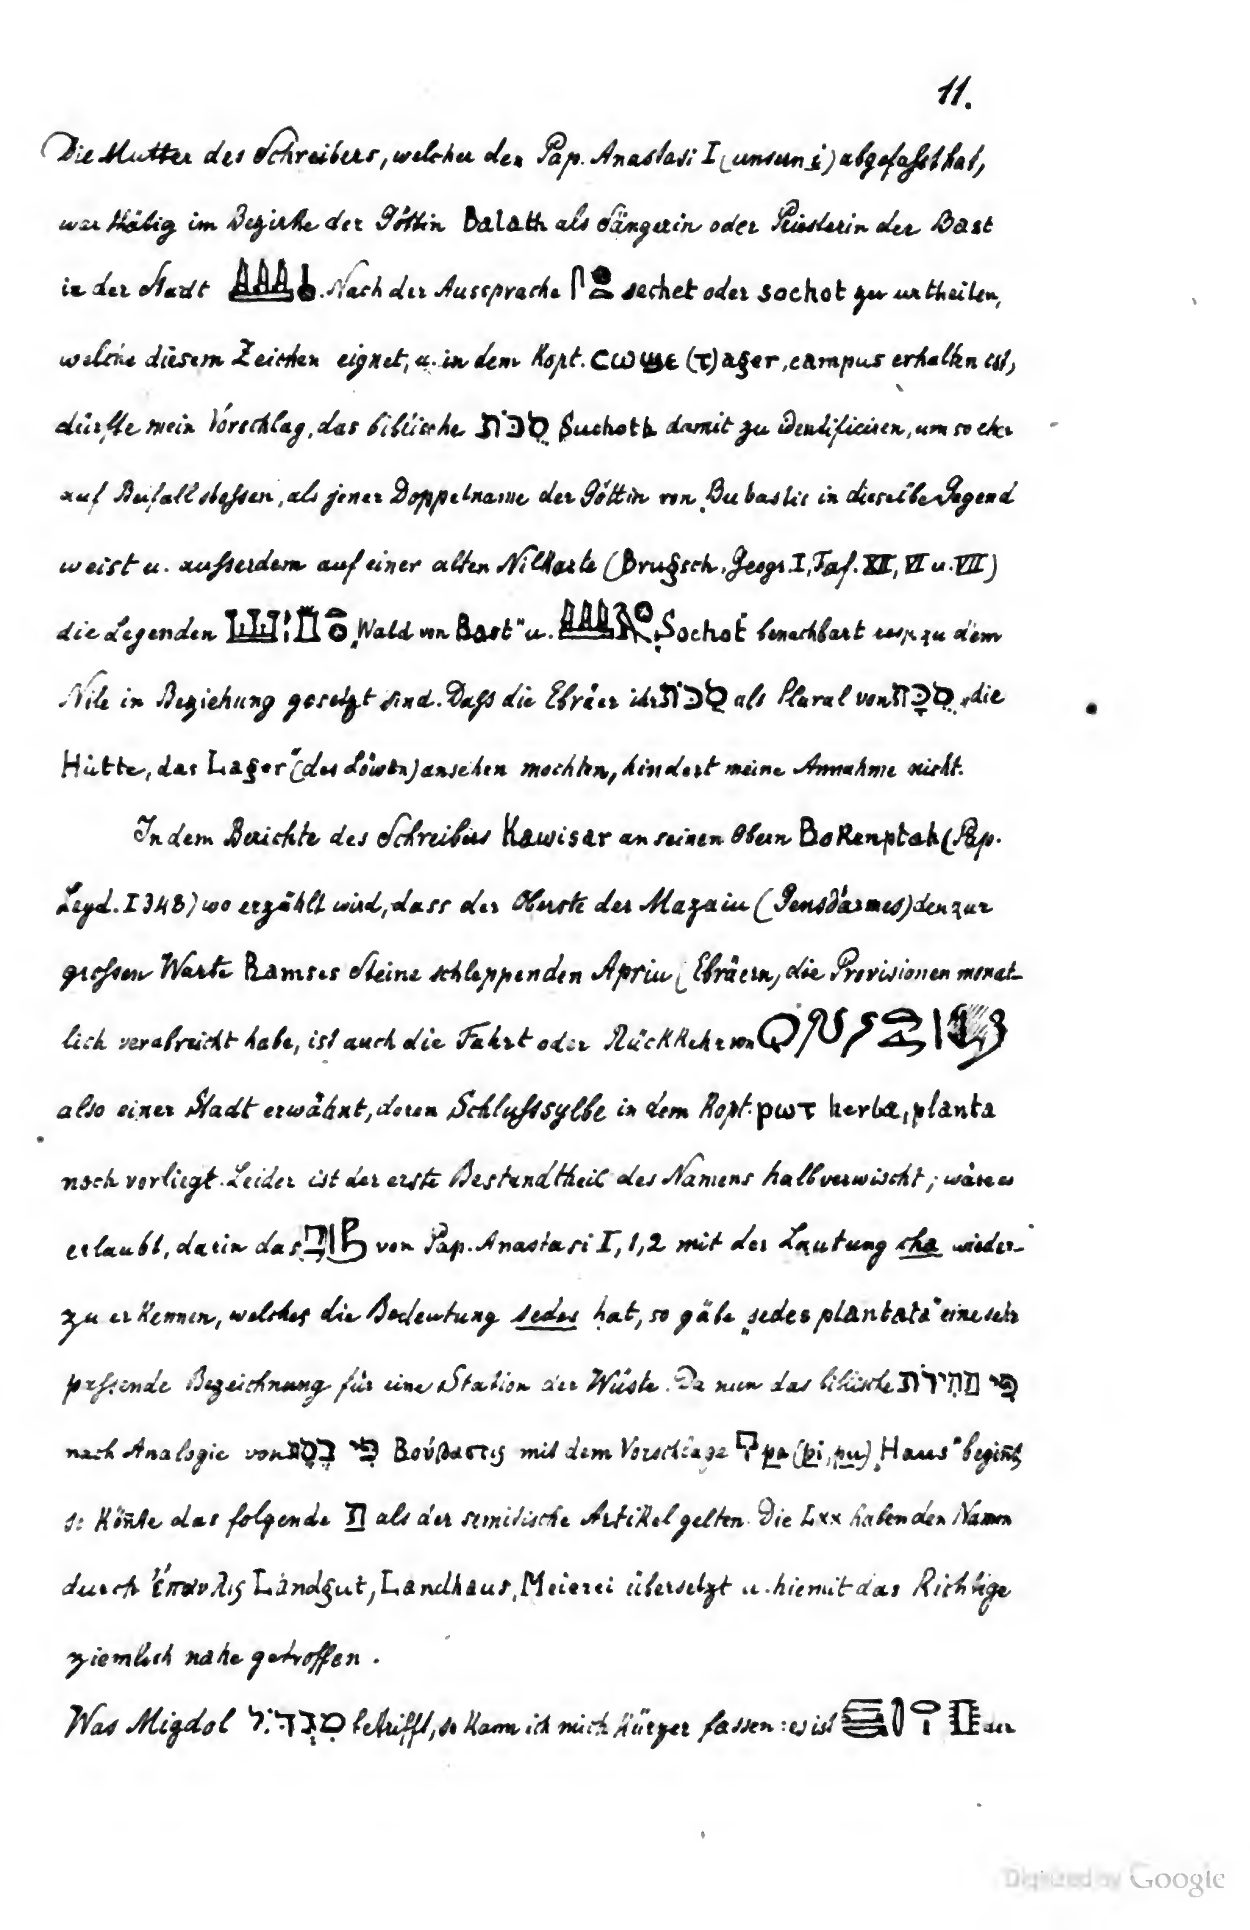 11.
Die Mutter des Schreibers, welcher den Pap. Anastasi I (unsern i) abgefaßt hat,
war thätig im Bezirke der Göttin Balath als Sängerin oder Priesterin der Bast
in der Stadt . Nach der Aussprache sechet oder sochot zu urtheilen,
welche diesem Zeichen eignet, u. in dem Kopt. ⲥⲱϣⲉ (ⲧ) ager, campus erhalten ist,
dürfte mein Vorschlag, das biblische סֻכּוֹת Suchoth damit zu identificiren, um so eher
auf Beifall stoßen, als jener Doppelname der Göttin von Bubastis in dieselbe Gegend
weist u. außerdem auf einer alten Nilkarte (Brugsch, Geogr. I, Taf. XII, VI u. VII)
die Legenden „Wald von Bast" u. „Sochot benachbart resp. zu dem
Nile in Beziehung gesetzt sind. Daß die Ebräer ihr סֻכּוֹת als Plural von סֻכָּה „die
Hütte, das Lager" (des Löwen) ansehen mochten, hindert meine Annahme nicht.
In dem Berichte des Schreibers Kawisar an seinen Obern Bokenptah (Pap.
Leyd. I 348) wo erzählt wird, dass der Oberste der Mazaiu (Gensdarmes) den zur
großen Warte Ramses Steine schleppenden Apriu (Ebräern, die Provisionen monat-
lich verabreicht habe, ist auch die Fahrt oder Rückkehr von
also einer Stadt erwähnt, deren Schlußsylbe in dem Kopt. ⲣⲱⲧ herba, planta
noch vorliegt. Leider ist der erste Bestandtheil des Namens halbverwischt; wäre es
erlaubt, darin das von Pap. Anastasi I, 1, 2 mit der Lautung cha wieder-
zu erkennen, welches die Bedeutung sedes hat, so gäbe „sedes plantata" eine sehr
passende Bezeichnung für eine Station der Wüste. Da nun das biblische פִּי הַחִירֹת
nach Analogie von פִּי בֶסֶת Βούβαστις mit dem Vorschlage pa (pi, pu) „Haus" beginnt,
so könnte das folgende הַ als der semitische Artikel gelten. Die Lxx haben den Namen
durch ἔπαυλις Landgut, Landhaus, Meierei übersetzt u. hiemit das Richtige
ziemlich nahe getroffen.
Was Migdol מִגְדּוֹל betrifft, so kann ich mich kürzer fassen: es ist der
Digitized by Google